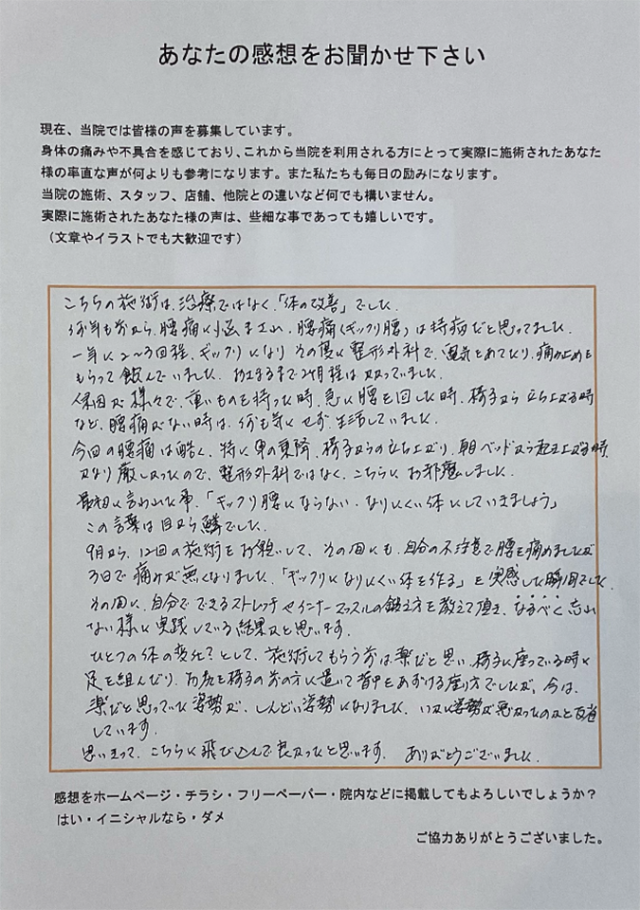 あなたの感想をお聞かせ下さい
現在、当院では皆様の声を募集しています。
身体の痛みや不具合を感じており、これから当院を利用される方にとって実際に施術されたあなた
様の率直な声が何よりも参考になります。また私たちも毎日の励みになります。
当院の施術、スタッフ、店舗、他院との違いなど何でも構いません。
実際に施術されたあなた様の声は、些細な事であっても嬉しいです。
（文章やイラストでも大歓迎です）
こちらの施術は、治療ではなく、「体の改善」でした。
何年も前から、腰痛に悩まされ、腰痛(ギックリ腰)は持病だと思ってました。
一年に2〜3回程、ギックリになり その度に整形外科で、電気をあてたり、痛み止めを
もらって飲んでいました。おさまるまで2ヶ月程はかかっていました。
原因が様々で、重いものを持った時、急に腰を回した時、椅子から立ち上がる時
など、腰痛がない時は、何も気にせず 生活していました。
今回の腰痛は酷く、特に車の乗降、椅子からの立ち上がり、朝ベッドから起き上がる時、
かなり厳しかったので、整形外科ではなく、こちらにお邪魔しました。
最初に言われた事、「ギックリ腰にならない・なりにくい体にしていきましょう」
この言葉は目から鱗でした。
9月から、12回の施術をお願いして、その間にも、自分の不注意で腰を痛めましたが
3日で痛みが無くなりました。「ギックリになりにくい体を作る」を実感した瞬間でした。
その間に、自分でできるストレッチやインナーマッスルの鍛え方を教えて頂き、なるべく忘れ
ない様に実践している結果かと思います。
ひとつの体の変化？として、施術してもらう前は楽だと思い、椅子に座っている時に
足を組んだり、お尻を椅子の前の方に置いて背中をあずける座り方でしたが、今は、
楽だと思っていた姿勢が、しんどい姿勢になりました。いかに姿勢が悪かったのかと反省
しています。
思いきって、こちらに飛び込んで良かったと思います。 ありがとうございました。
感想をホームページ・チラシ・フリーペーパー・院内などに掲載してもよろしいでしょうか？
はい・イニシャルなら・ダメ
ご協力ありがとうございました。